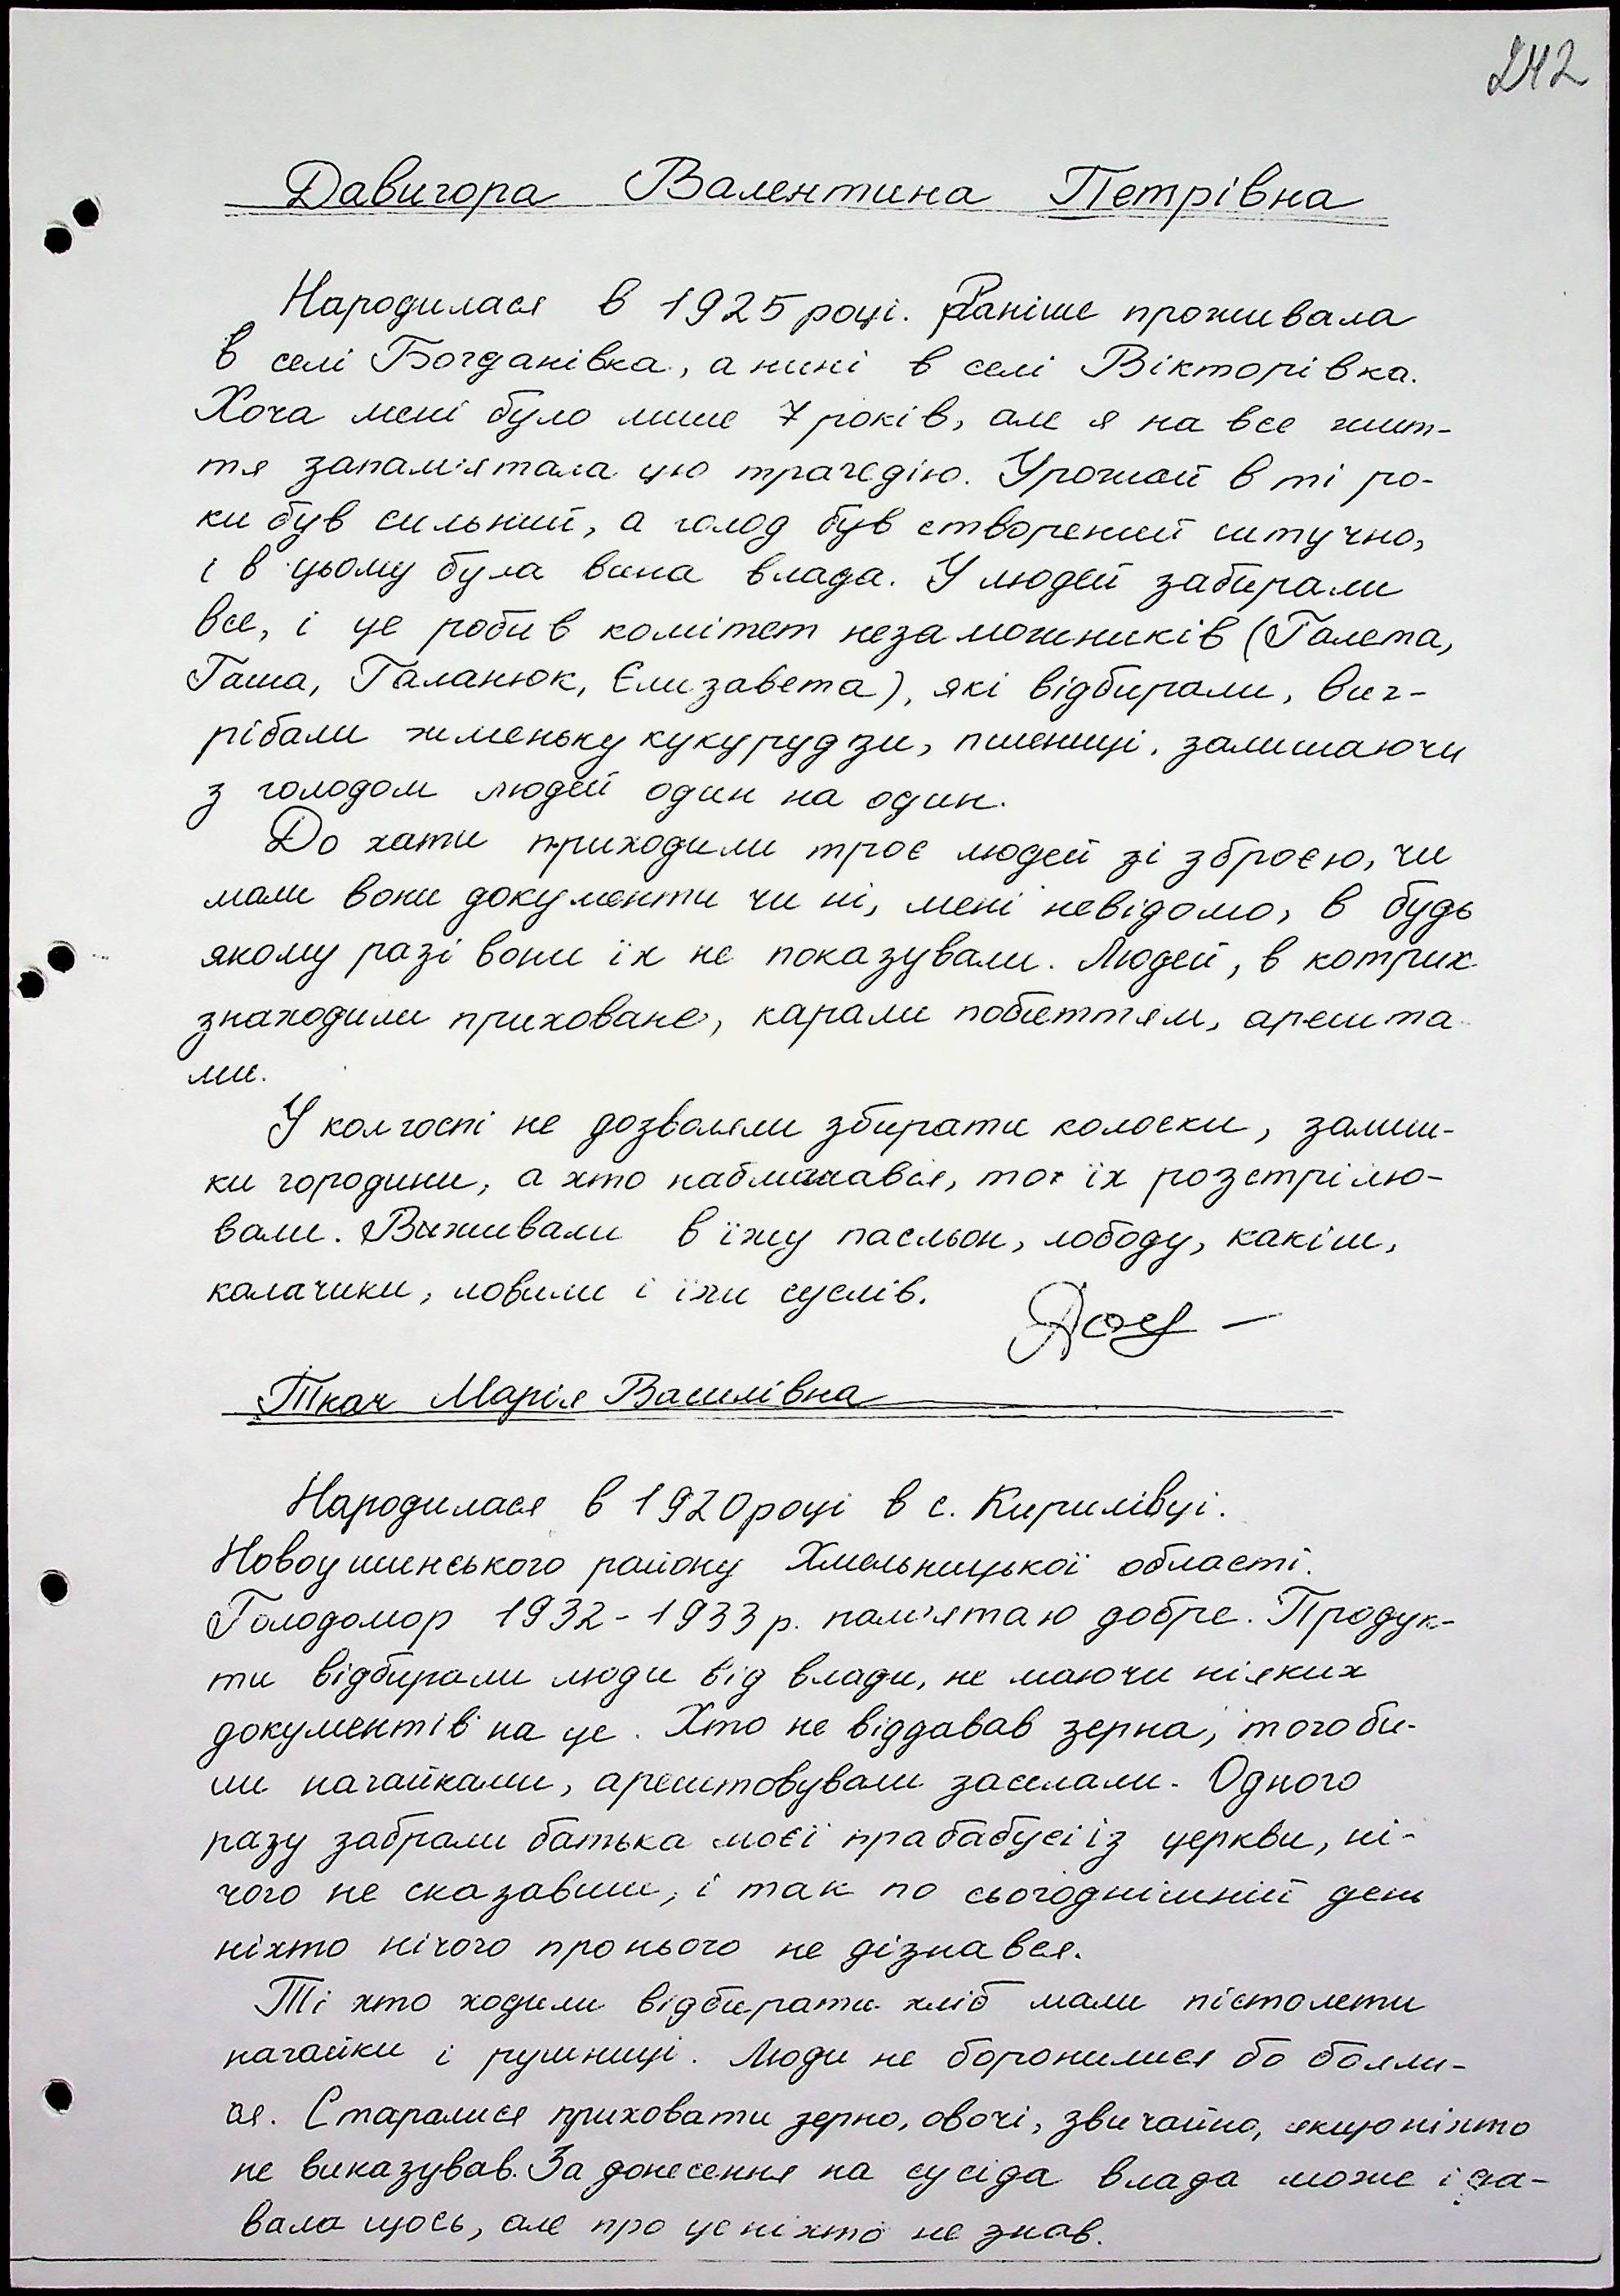 242
Давигора Валентина Петрівна
Народилася в 1925 році. Раніше проживала
в селі Богданівка, а нині в селі Вікторівка.
Хоча мені було лише 7 років, але я на все жит-
тя запам'ятала цю трагедію. Урожай в ті ро-
ки був сильний, а голод був створений штучно,
і в цьому була вина влада. У людей забирали
все, і це робив комітет незаможників (Галета,
Гаша, Галанюк, Єлизавета), які відбирали, виг-
рібали жменьку кукурудзи, пшениці, залишаючи
з голодом людей один на один.
До хати приходили троє людей зі зброєю, чи
мали вони документи чи ні, мені невідомо, в будь
якому разі вони їх не показували. Людей, в котрих
знаходили приховане, карали побиттям, арешта
ми.
У колгоспі не дозволяли збирати колоски, залиш-
ки городини, а хто наближався, то їх розстрілю-
вали. Вживали в їжу пасльон, лободу, какіш,
калачики, ловили і їли суслів.
Ткач Марія Василівна
Народилася в 1920 році в с. Кирилівці.
Новоушинського району Хмельницької області.
Голодомор 1932-1933 р. пам'ятаю добре. Продук-
ти відбирали люди від влади, не маючи ніяких
документів на це. Хто не віддавав зерна, того би-
ли нагайками, арештовували засилали. Одного
разу забрали батька моєї прабабусі із церкви, ні-
чого не сказавши, і так по сьогоднішній день
ніхто нічого про нього не дізнався.
Ті хто ходили відбирати хліб мали пістолети
нагайки і рушниці. Люди не боронилися бо бояли-
ся. Старалися приховати зерно, овочі, звичайно, якщо ніхто
не виказував. За донесення на сусіда влада може і да-
вала щось, але про це ніхто не знав.